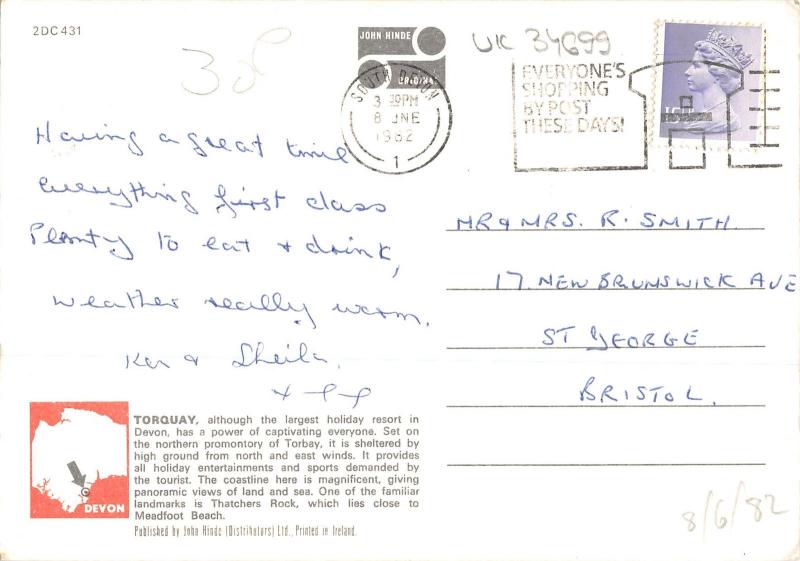 2DC 431
30P
JOHN HINDE
ORIGINAL
UK 34699
SOUTH DEVON
3 PM
8 JNE
1982
1
EVERYONE'S
SHOPPING
BY POST
THESE DAYS!
Having a great time
Everything first class
Plenty to eat & drink,
weather really warm.
Ken & Sheila.
x x x x
MR & MRS. R. SMITH.
17. NEW BRUNSWICK AVE
ST GEORGE
BRISTOL.
DEVON
TORQUAY, although the largest holiday resort in
Devon, has a power of captivating everyone. Set on
the northern promontory of Torbay, it is sheltered by
high ground from north and east winds. It provides
all holiday entertainments and sports demanded by
the tourist. The coastline here is magnificent, giving
panoramic views of land and sea. One of the familiar
landmarks is Thatchers Rock, which lies close to
Meadfoot Beach.
Published by John Hinde (Distributors) Ltd., Printed in Ireland.
8/6/82